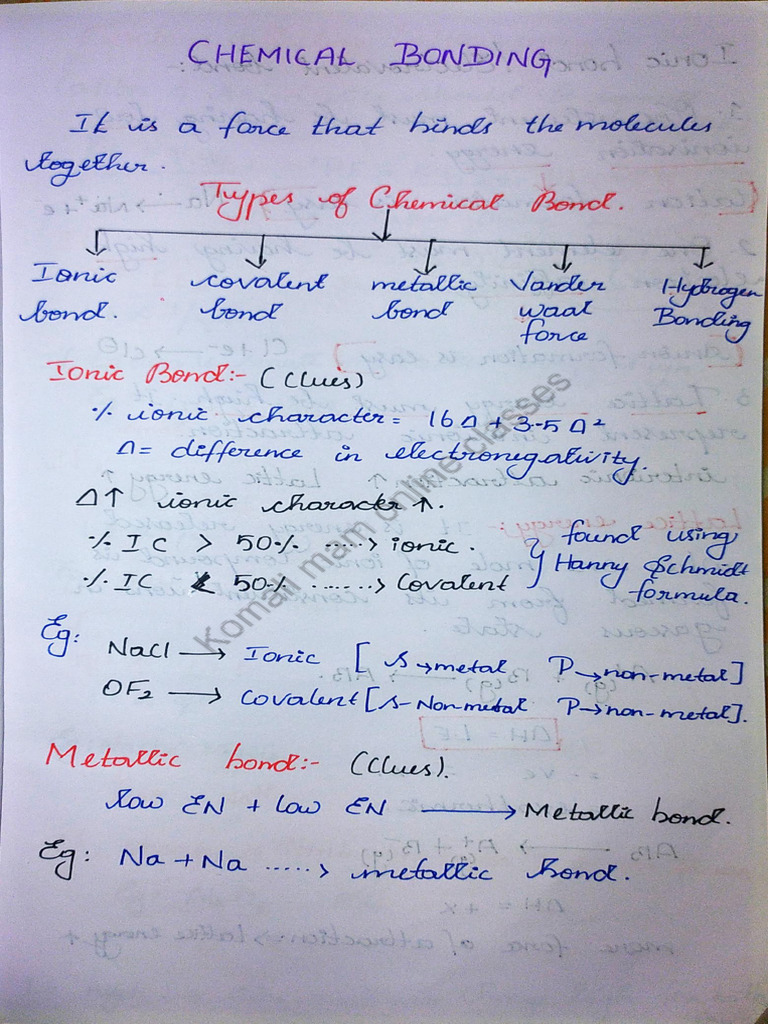 CHEMICAL BONDING
It is a force that binds the molecules
together.
Types of Chemical Bond.
Ionic bond.
covalent bond
metallic bond
Vander waal force
Hydrogen Bonding
Ionic Bond:- (Clues)
·/· ionic character = 16 Δ + 3.5 Δ²
Δ = difference in electronegativity.
Δ↑ ionic character ↑.
·/· IC > 50·/· ······> ionic.
·/· IC < 50·/· ······> Covalent
} found using
Hanny Schmidt
formula.
Eg: NaCl → Ionic [ s → metal P → non-metal]
OF₂ → covalent [s-Non-metal P → non-metal].
Metallic bond:- (Clues).
low EN + low EN → Metallic bond.
Eg: Na + Na ·····> metallic Bond.
Komali mam online classes